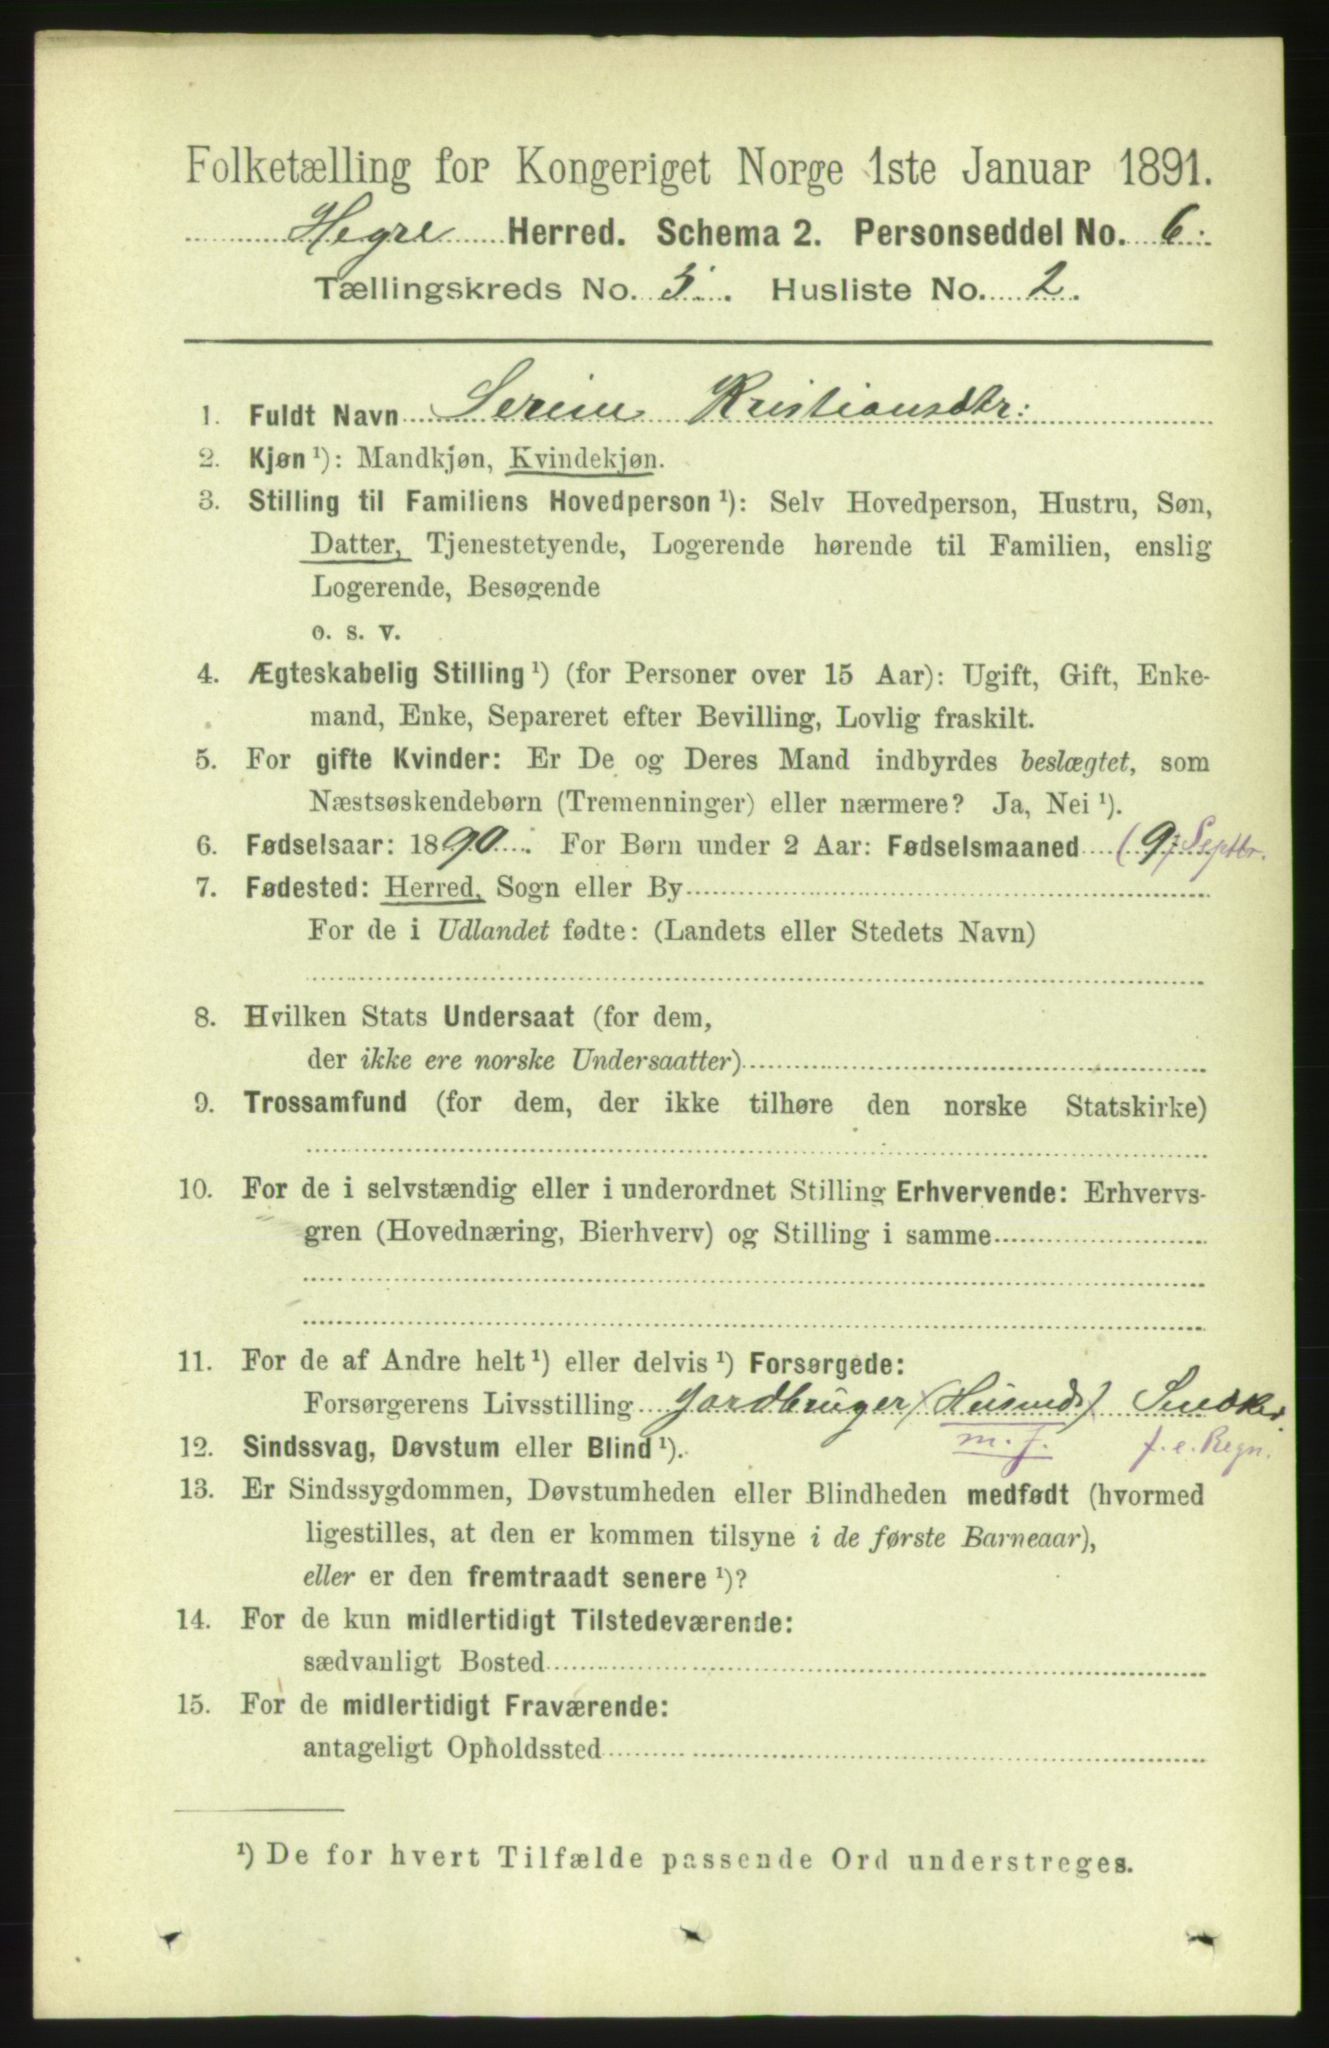 Folketælling for Kongeriget Norge 1ste Januar 1891.
Hegre Herred. Schema 2. Personseddel No. 6.
Tællingskreds No. 3. Husliste No. 2.
1. Fuldt Navn Serine Kristiansdtr:
2. Kjøn ¹): Mandkjøn, Kvindekjøn.
3. Stilling til Familiens Hovedperson ¹): Selv Hovedperson, Hustru, Søn,
Datter, Tjenestetyende, Logerende hørende til Familien, enslig
Logerende, Besøgende
o. s. v.
4. Ægteskabelig Stilling ¹) (for Personer over 15 Aar): Ugift, Gift, Enke-
mand, Enke, Separeret efter Bevilling, Lovlig fraskilt.
5. For gifte Kvinder: Er De og Deres Mand indbyrdes beslægtet, som
Næstsøskendebørn (Tremenninger) eller nærmere? Ja, Nei ¹).
6. Fødselsaar: 1890. For Børn under 2 Aar: Fødselsmaaned (9) Septbr.
7. Fødested: Herred, Sogn eller By
For de i Udlandet fødte: (Landets eller Stedets Navn)
8. Hvilken Stats Undersaat (for dem,
der ikke ere norske Undersaatter)
9. Trossamfund (for dem, der ikke tilhøre den norske Statskirke)
10. For de i selvstændig eller i underordnet Stilling Erhvervende: Erhvervs-
gren (Hovednæring, Bierhverv) og Stilling i samme
11. For de af Andre helt ¹) eller delvis ¹) Forsørgede:
Forsørgerens Livsstilling Jordbruger (Husmd) Snedker
m. J. f. e. Regn.
12. Sindssvag, Døvstum eller Blind ¹).
13. Er Sindssygdommen, Døvstumheden eller Blindheden medfødt (hvormed
ligestilles, at den er kommen tilsyne i de første Barneaar),
eller er den fremtraadt senere ¹)?
14. For de kun midlertidigt Tilstedeværende:
sædvanligt Bosted
15. For de midlertidigt Fraværende:
antageligt Opholdssted
¹) De for hvert Tilfælde passende Ord understreges.